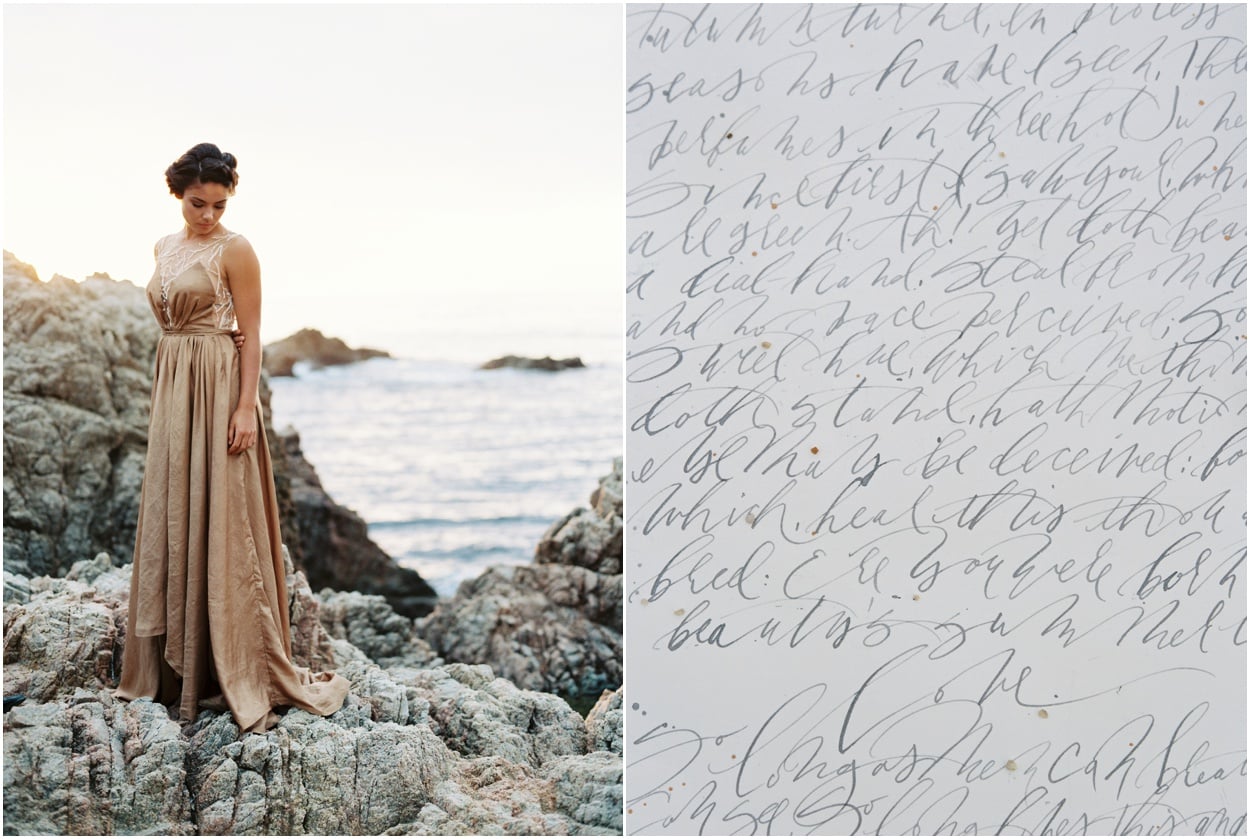 autumn turn'd, in process
seasons have I seen, Thre
perfumes in three hot June
Since first I saw you, wh
are green. Ah! yet doth beau
a dial-hand, steal from h
and no pace perceived; So
Sweet hue, which methin
doth stand, hath motion
else may be deceived: for
which, hear this thou
bred: Ere you were born
beauty's summer
love.
So long as men can breat
long lives this and